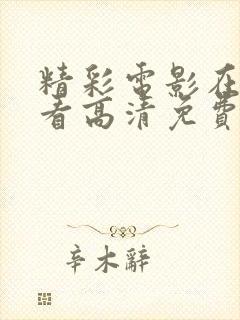 精彩電影在
看高清免費
辛木辭